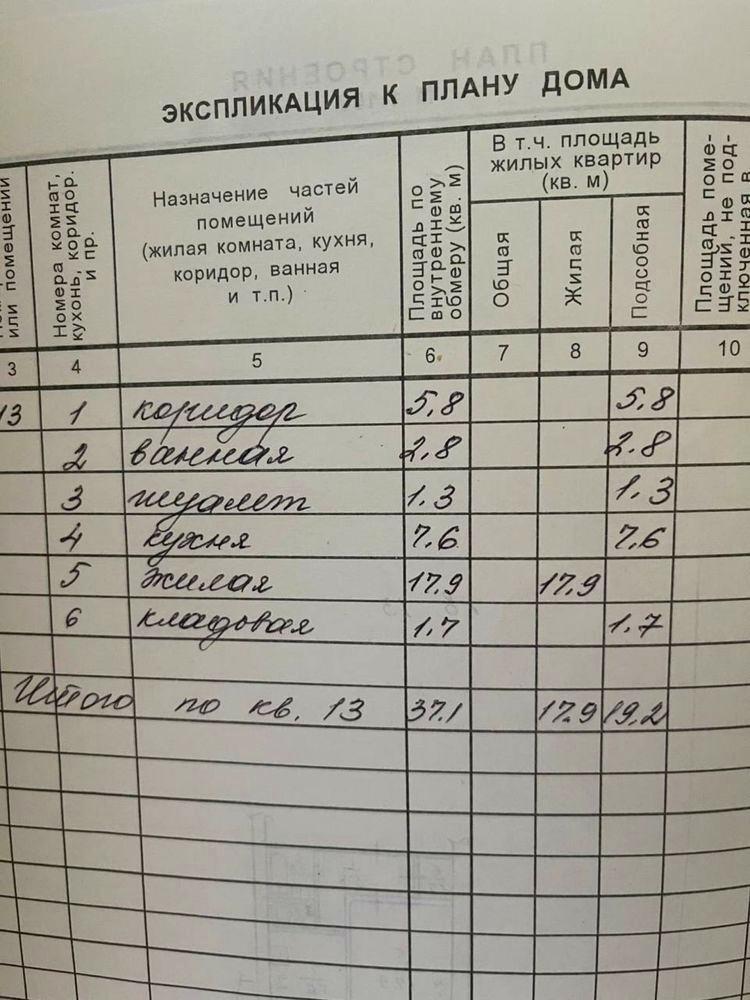 ЭКСПЛИКАЦИЯ К ПЛАНУ ДОМА
или помещений
Номера комнат,
кухонь, коридор.
и пр.
Назначение частей
помещений
(жилая комната, кухня,
коридор, ванная
и т.п.)
Площадь по
внутреннему
обмеру (кв. м)
В т.ч. площадь
жилых квартир
(кв. м)
Общая
Жилая
Подсобная
Площадь поме-
щений, не под-
ключенная в
3 4 5 6 7 8 9 10
13 1 коридор 5,8 5.8
2 ванная 2,8 2.8
3 туалет 1.3 1.3
4 кухня 7.6 7,6
5 жилая 17.9 17.9
6 кладовая 1.7 1.7
Итого по кв. 13 37.1 17.9 19,2